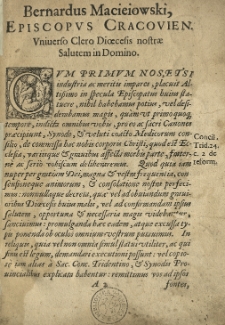 Bernardus Macieiowski,
EPISCOPVS CRACOVIEN.
Vniuerso Clero Diœcesis nostræ
Salutem in Domino.
CVM PRIMVM NOS, ETSI
industria ac meritis impares, placuit Al-
tißimo in specula Episcopatus huius sta-
tuere, nihil habebamus potius, vel desi-
derabamus magis, quàm vt primo quoq;
tempore, indicta omnibus vobis, pro eo ac sacri Canones
præcipiunt, Synodo, & veluti coacto Medicorum consi-
lio, de commissa hac nobis corporis Christi, quod est Ec-
clesia,
ac seriò vobiscum deliberaremus.
per per gratiam Dei, magna Vestra frequentia, con-
& consolatione nostra perfeci-
mus:
ribus Diœcesis huius malis, vel ad confirmandam ipsius
salutem, opportuna & necessaria magis videbantur,
sanciuimus: promulganda hæc eadem, atque excussa ty-
pis ponenda ob oculos omnium vestrum putauimus. In
reliquis, quia vel non omnia simul statui vtiliter, ac qui
finis est legum, demandari executioni possunt: vel copio-
se iam alias à Sac. Conc. Tridentino, & Synodis Pro-
uincialibus explicata habentur: remittimus vos ad ipsos
A 2 fontes,
Concil.
Trid. 24.
c. 2 de
reform.